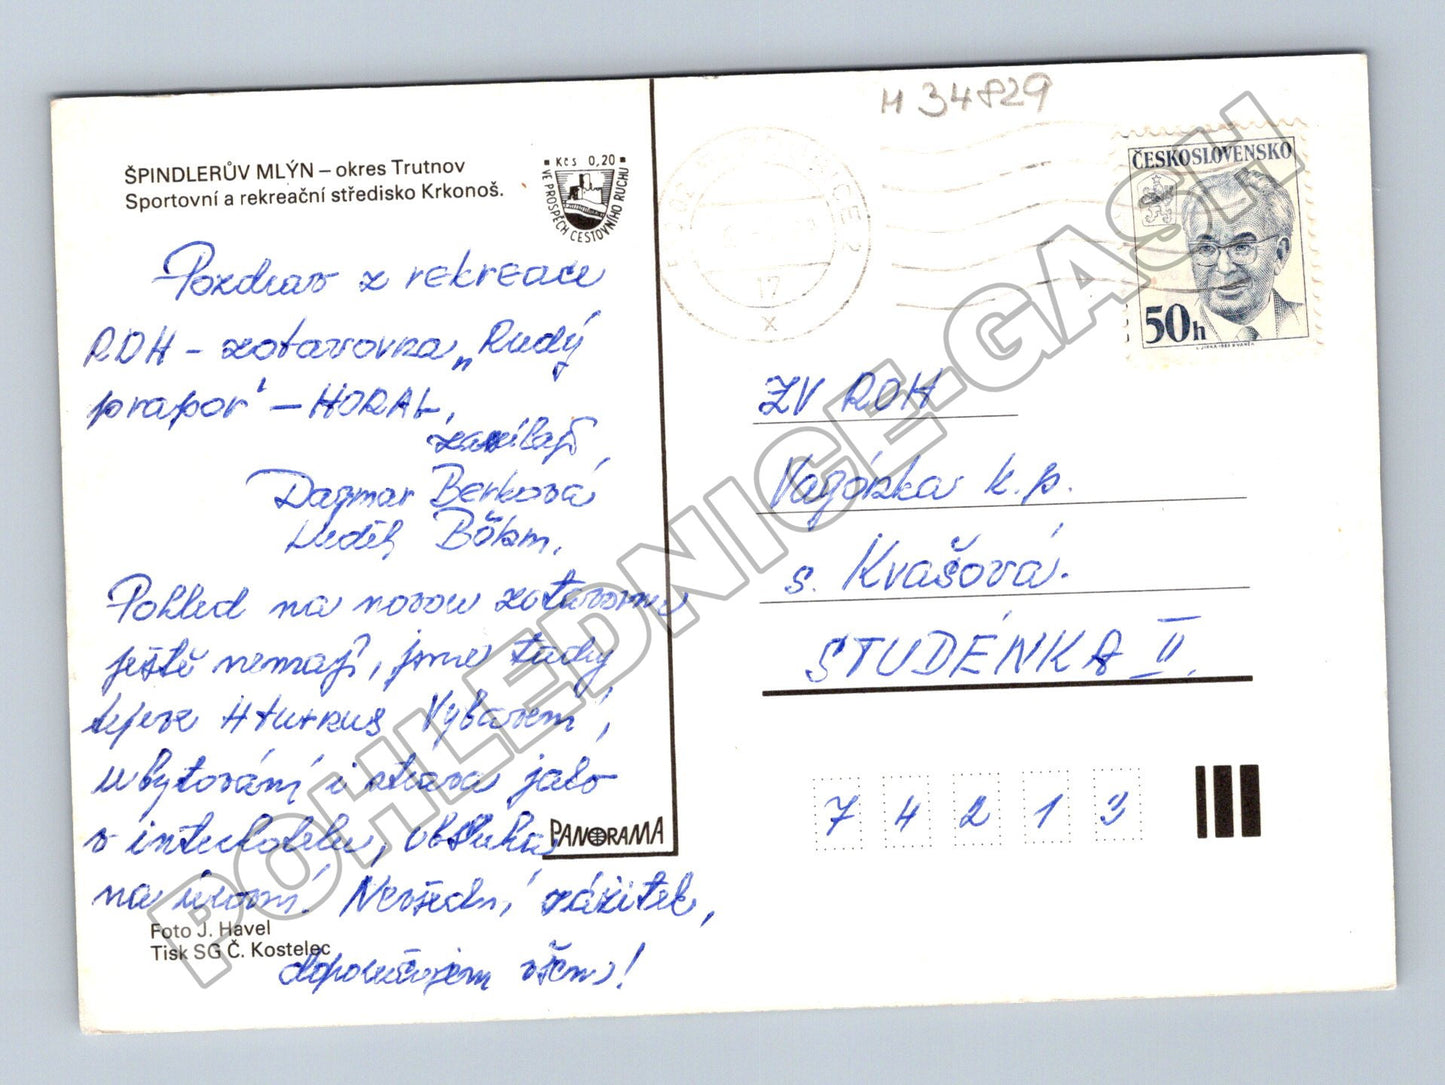 ŠPINDLERŮV MLÝN – okres Trutnov
Sportovní a rekreační středisko Krkonoš.
Kčs 0,20
VE PROSPĚCH CESTOVNÍHO RUCHU
Pozdrav z rekreace
ROH – zotavovna „Rudý
prapor" – HORAL,
zasílají
Dagmar Berková
Luděk Böhm.
Pohled na novou zotavovnu
ještě nemají, jsme tady
teprve
Vybavení,
ubytování i strava jako
v interhotelu, obsluha
na úrovni. Nevšední zážitek,
doporučujem všem!
Foto J. Havel
Tisk SG Č. Kostelec
PANORAMA
M 34829
ČESKOSLOVENSKO
50h
17
x
ZV ROH
Vagónka k.p.
s. Kvašová.
STUDÉNKA II.
74213
POHLEDNICE-GASH